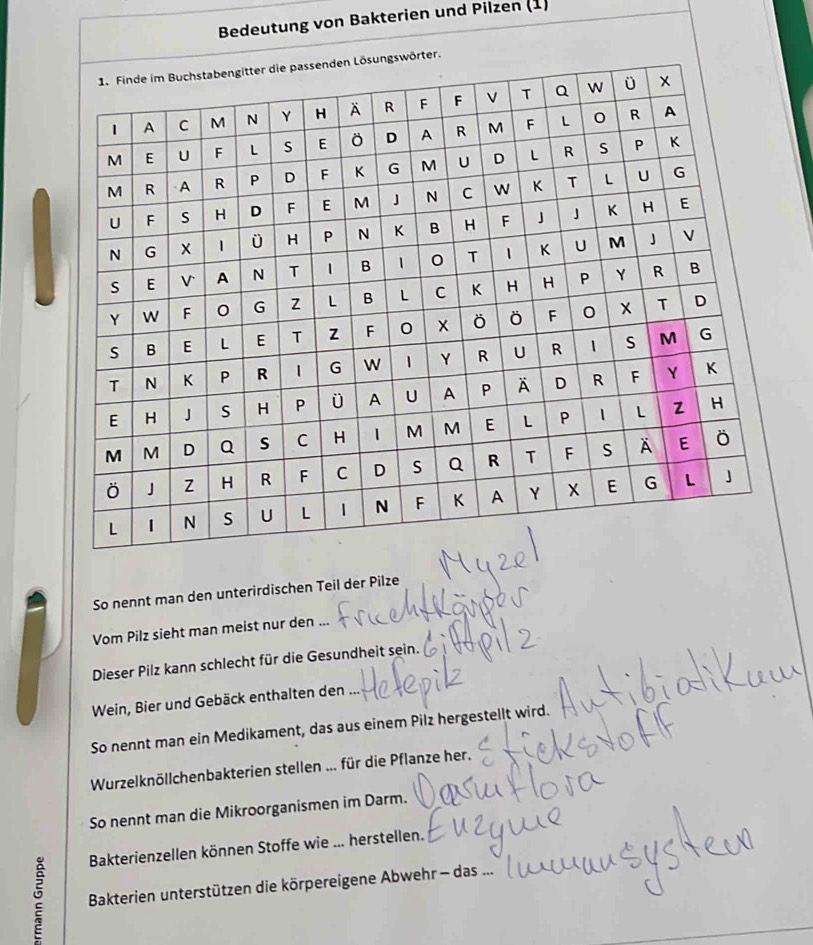 Bedeutung von Bakterien und Pilzen (1)
1. Finde im Buchstabengitter die passenden Lösungswörter.
I A C M N Y H Ä R F F V T Q W Ü X
M E U F L S E Ö D A R M F L O R A
M R A R P D F K G M U D L R S P K
U F S H D F E M J N C W K T L U G
N G X I Ü H P N K B H F J J K H E
S E V A N T I B I O T I K U M J V
Y W F O G Z L B L C K H H P Y R B
S B E L E T Z F O X Ö Ö F O X T D
T N K P R I G W I Y R U R I S M G
E H J S H P Ü A U A P Ä D R F Y K
M M D Q S C H I M M E L P I L Z H
Ö J Z H R F C D S Q R T F S Ä E Ö
L I N S U L I N F K A Y X E G L J
So nennt man den unterirdischen Teil der Pilze Myzel
Vom Pilz sieht man meist nur den ... Fruchtkörper
Dieser Pilz kann schlecht für die Gesundheit sein. Giftpilz
Wein, Bier und Gebäck enthalten den ... Hefepilz
So nennt man ein Medikament, das aus einem Pilz hergestellt wird. Antibiotikum
Wurzelknöllchenbakterien stellen ... für die Pflanze her. Stickstoff
So nennt man die Mikroorganismen im Darm. Darmflora
Bakterienzellen können Stoffe wie ... herstellen. Enzyme
Bakterien unterstützen die körpereigene Abwehr – das ... Immunsystem
ermann Gruppe